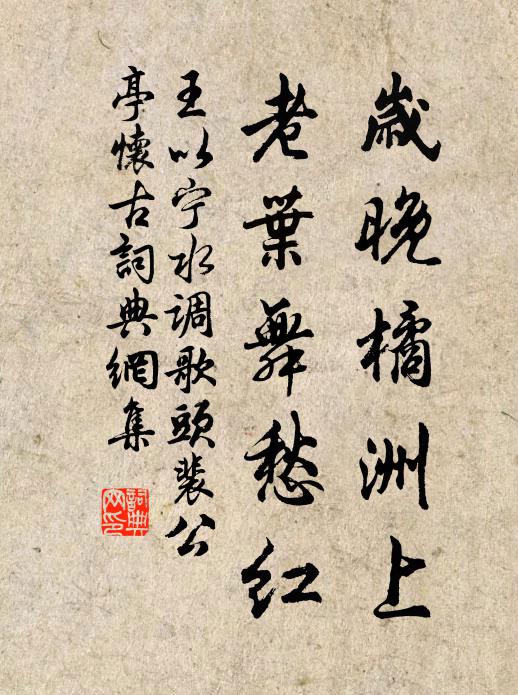 歲晚橘洲上
老葉舞愁紅
王以宁水调歌頭裴公
亭懷古詞典網集
詞典
网印